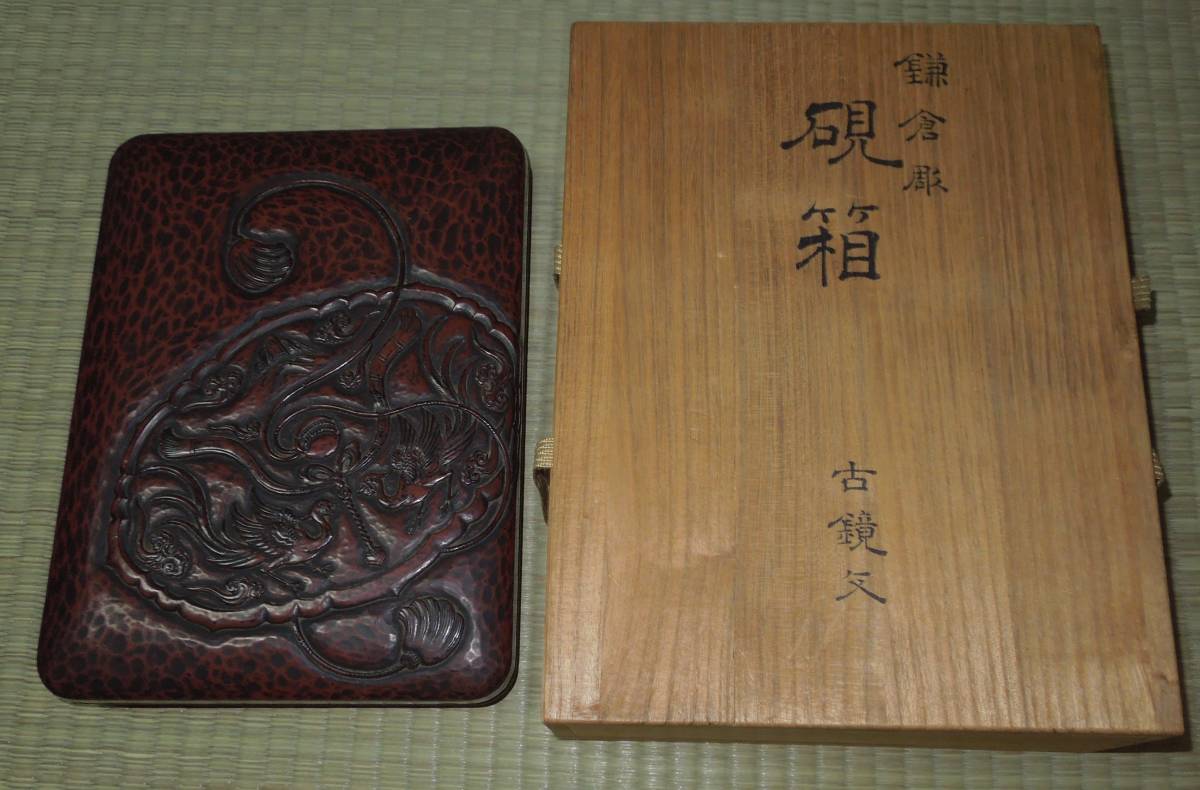 鎌倉彫
硯箱
古鏡文